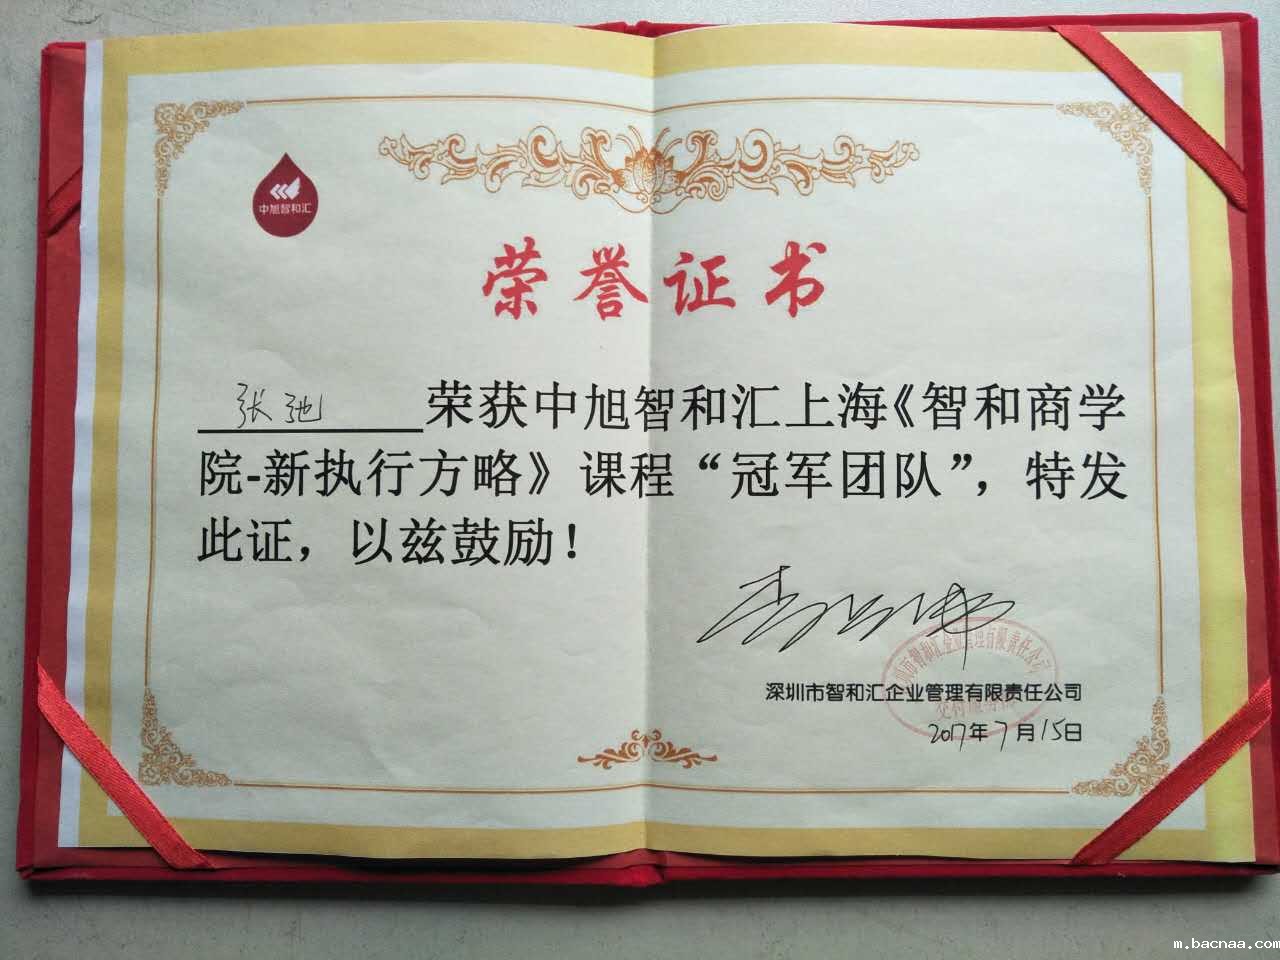 中旭智和汇
荣誉证书
张弛 荣获中旭智和汇上海《智和商学
院-新执行方略》课程“冠军团队”，特发
此证，以兹鼓励！
深圳市智和汇企业管理有限责任公司
2017年7月15日
m.bacnaa.com